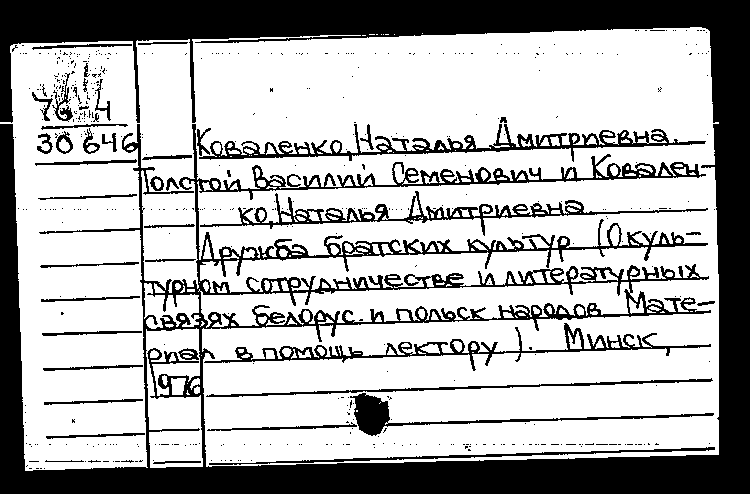 76-4
30646
Коваленко, Наталья Дмитриевна.
Толстой, Василий Семенович и Ковален-
ко, Наталья Дмитриевна.
Дружба братских культур (О куль-
турном сотрудничестве и литературных
связях белорус. и польск народов Мате-
риал в помощь лектору). Минск,
1976